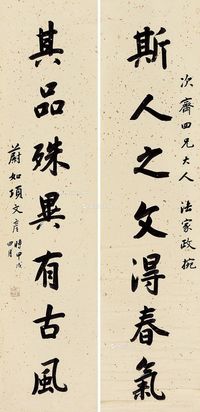 次齋四兄大人 法家政椀
斯人之文得春氣
其品殊異有古風
蔚如項文彥 時甲戌
四月